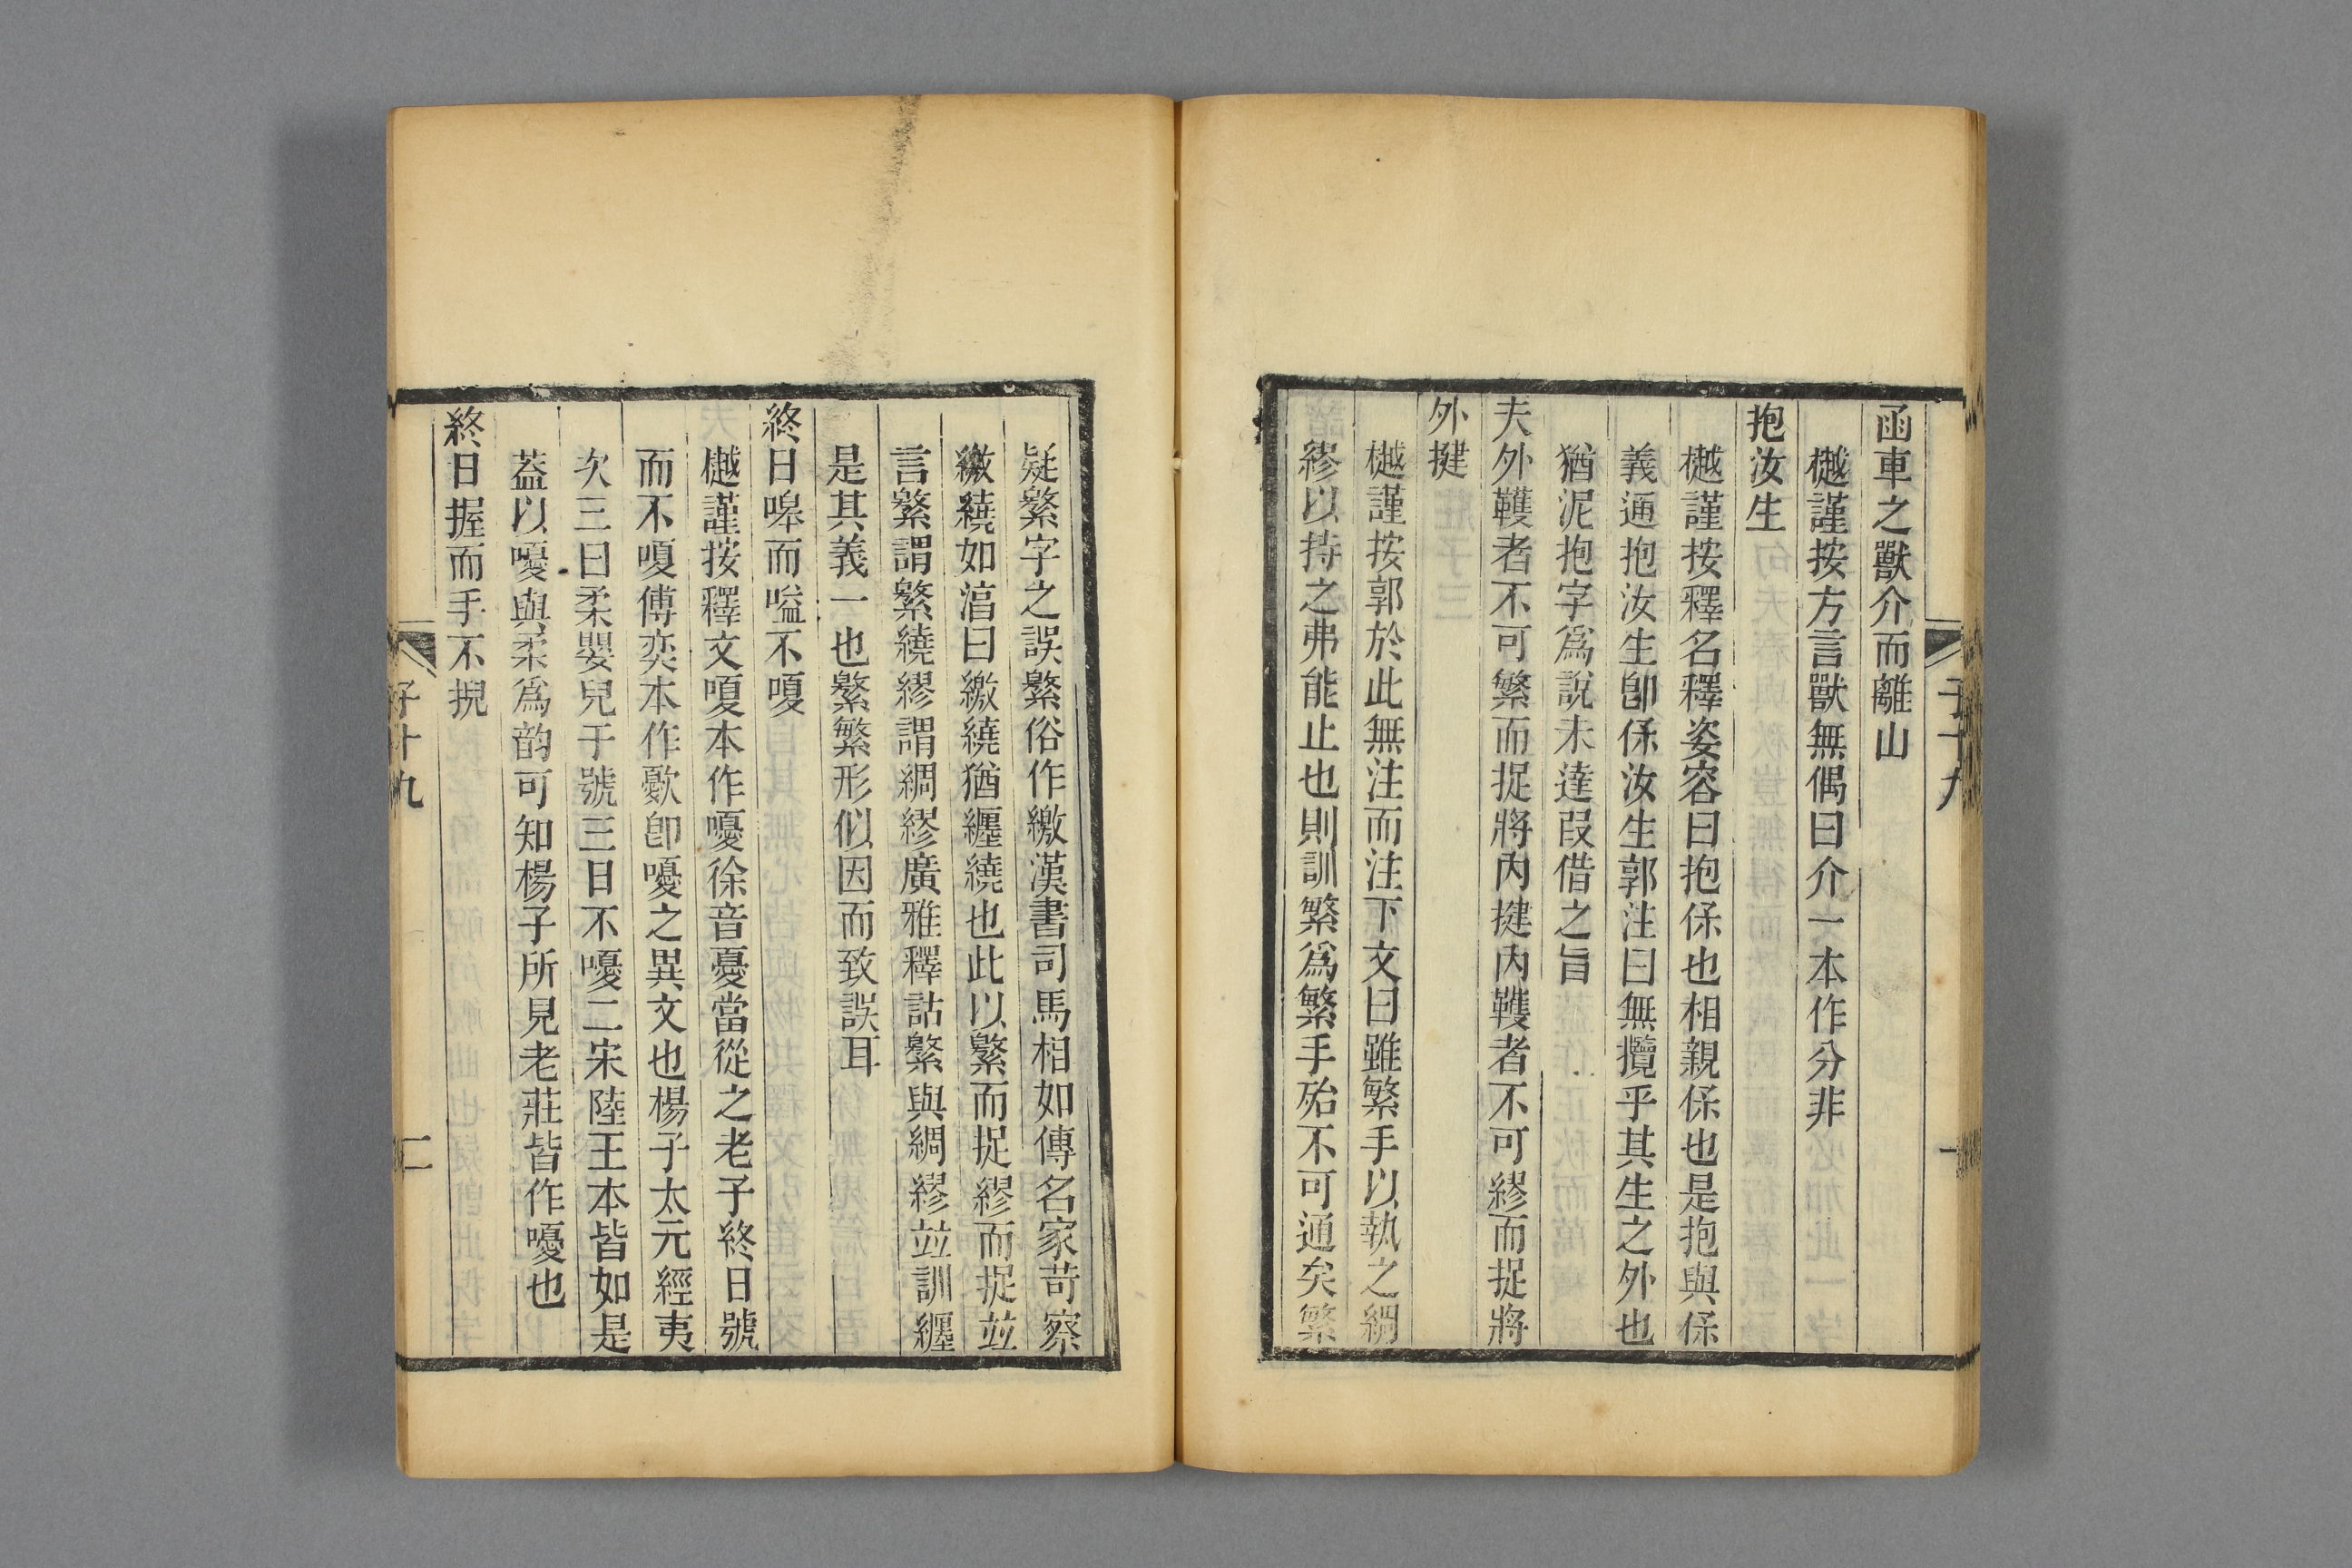 函車之獸介而離山
樾謹按方言獸無偶曰介一本作分非
抱汝生
樾謹按釋名釋姿容曰抱保也相親保也是抱與保
義通抱汝生卽保汝生郭注曰無攬乎其生之外也
猶泥抱字爲說未達叚借之旨
夫外韄者不可繁而捉將內揵內韄者不可繆而捉將
外揵
樾謹按郭於此無注而注下文曰雖繁手以執之綢
繆以持之弗能止也則訓繁爲繁手殆不可通矣繁
子十九
一
疑繁字之誤繁俗作繳漢書司馬相如傳名家苛察
繳繞如湻曰繳繞猶纏繞也此以繁而捉繆而捉竝
言繁謂繁繞繆謂綢繆廣雅釋詁繁與綢繆竝訓纏
是其義一也繁繁形佀因而致誤耳
終日嘷而嗌不嗄
樾謹按釋文嗄本作嚘徐音憂當從之老子終日號
而不嗄傅奕本作歐卽嚘之異文也楊子太元經夷
次三曰柔嬰兒于號三日不嚘二宋陸王本皆如是
葢以嚘與柔爲韵可知楊子所見老莊皆作嚘也
終日握而手不掜
子十九
二